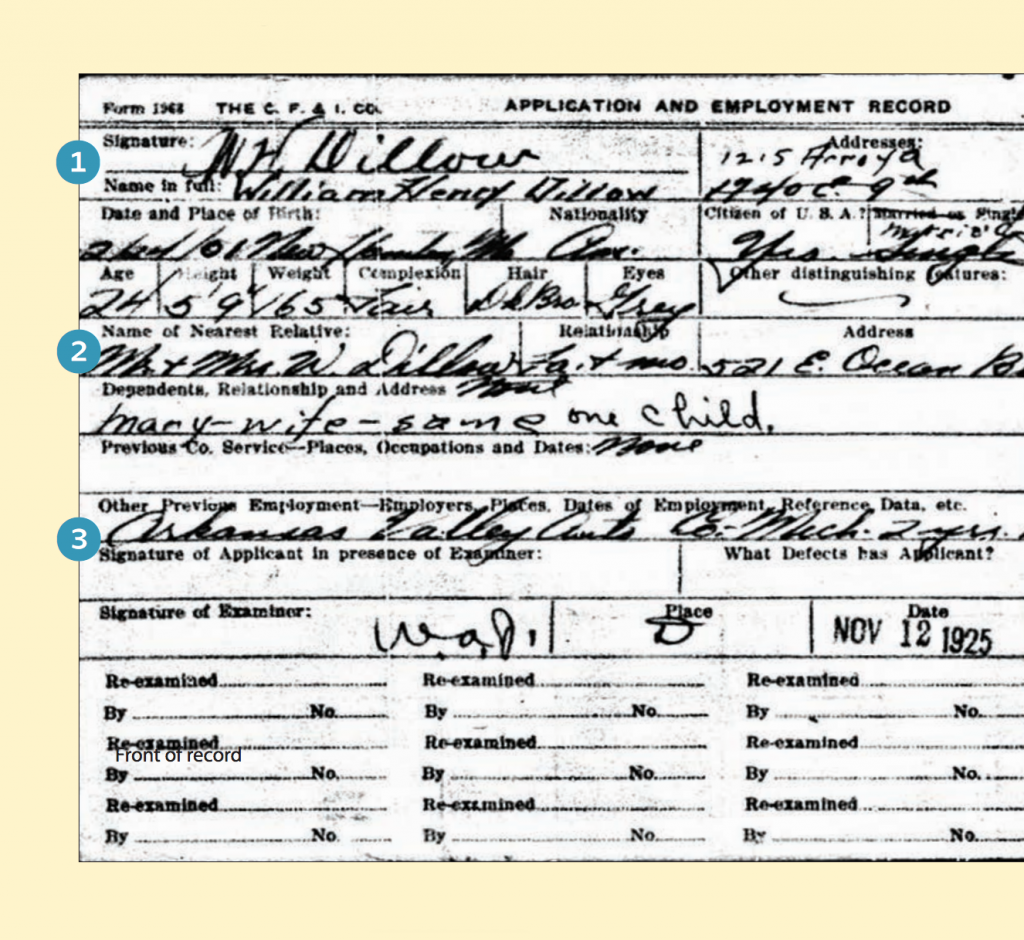 Form 1963 THE C. F. & I. CO. APPLICATION AND EMPLOYMENT RECORD
1
Signature: W H Dillow Addresses: 1215 Arroya
Name in full: William Henry Dillow 1240 E 9th
Date and Place of Birth: Nationality Citizen of U. S. A.? Married or Singl
New Am. Yes. Single
Age Height Weight Complexion Hair Eyes Other distinguishing features:
24 5' 9" 165 Fair Dk Bro Grey
2
Name of Nearest Relative: Relationship Address
Mr. + Mrs. W. Dillow Fa. + mo 521 E. Ocean
Dependents, Relationship and Address None
Mary-wife-same one child.
Previous Co. Service—Places, Occupations and Dates: None
Other Previous Employment—Employers, Places, Dates of Employment, Reference Data, etc.
3
Arkansas Valley Auto Co. Mech. 2 yrs.
Signature of Applicant in presence of Examiner: What Defects has Applicant?
Signature of Examiner: Place Date
D NOV 12 1925
Re-examined Re-examined Re-examined
By No. By No. By No.
Re-examined Re-examined Re-examined
Front of record
By No. By No. By No.
Re-examined Re-examined Re-examined
By No. By No. By No.